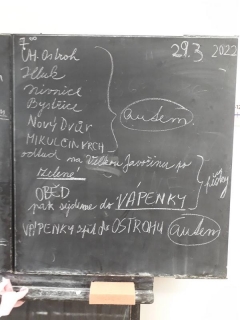 7⁰⁰
29.3 2022
UH. Ostroh
Hluk
Nivnice
Bystřice
Nový Dvůr
MIKULČIN VRCH
autem.
odtud na Velkou Javořinu po
zelené
pěšky
OBĚD
pak sejdeme do VÁPENKY
VÁPENKY zpět do OSTROHU autem